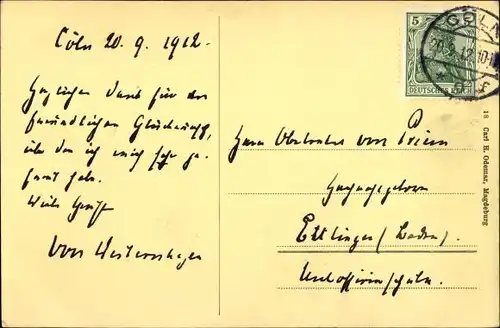 Cöln 20. 9. 1912.
Herzlichen Dank für den
freundlichen Glückwunsch,
über den ich mich sehr ge
freut habe.
Viele Grüße
von Westernhagen
5
DEUTSCHES REICH
CÖLN
20.9.12.10-11
Herrn Oberleutnant von
Hochwohlgeboren
Ettlingen (Baden).
Unteroffizierschule.
18 Carl H. Odemar, Magdeburg